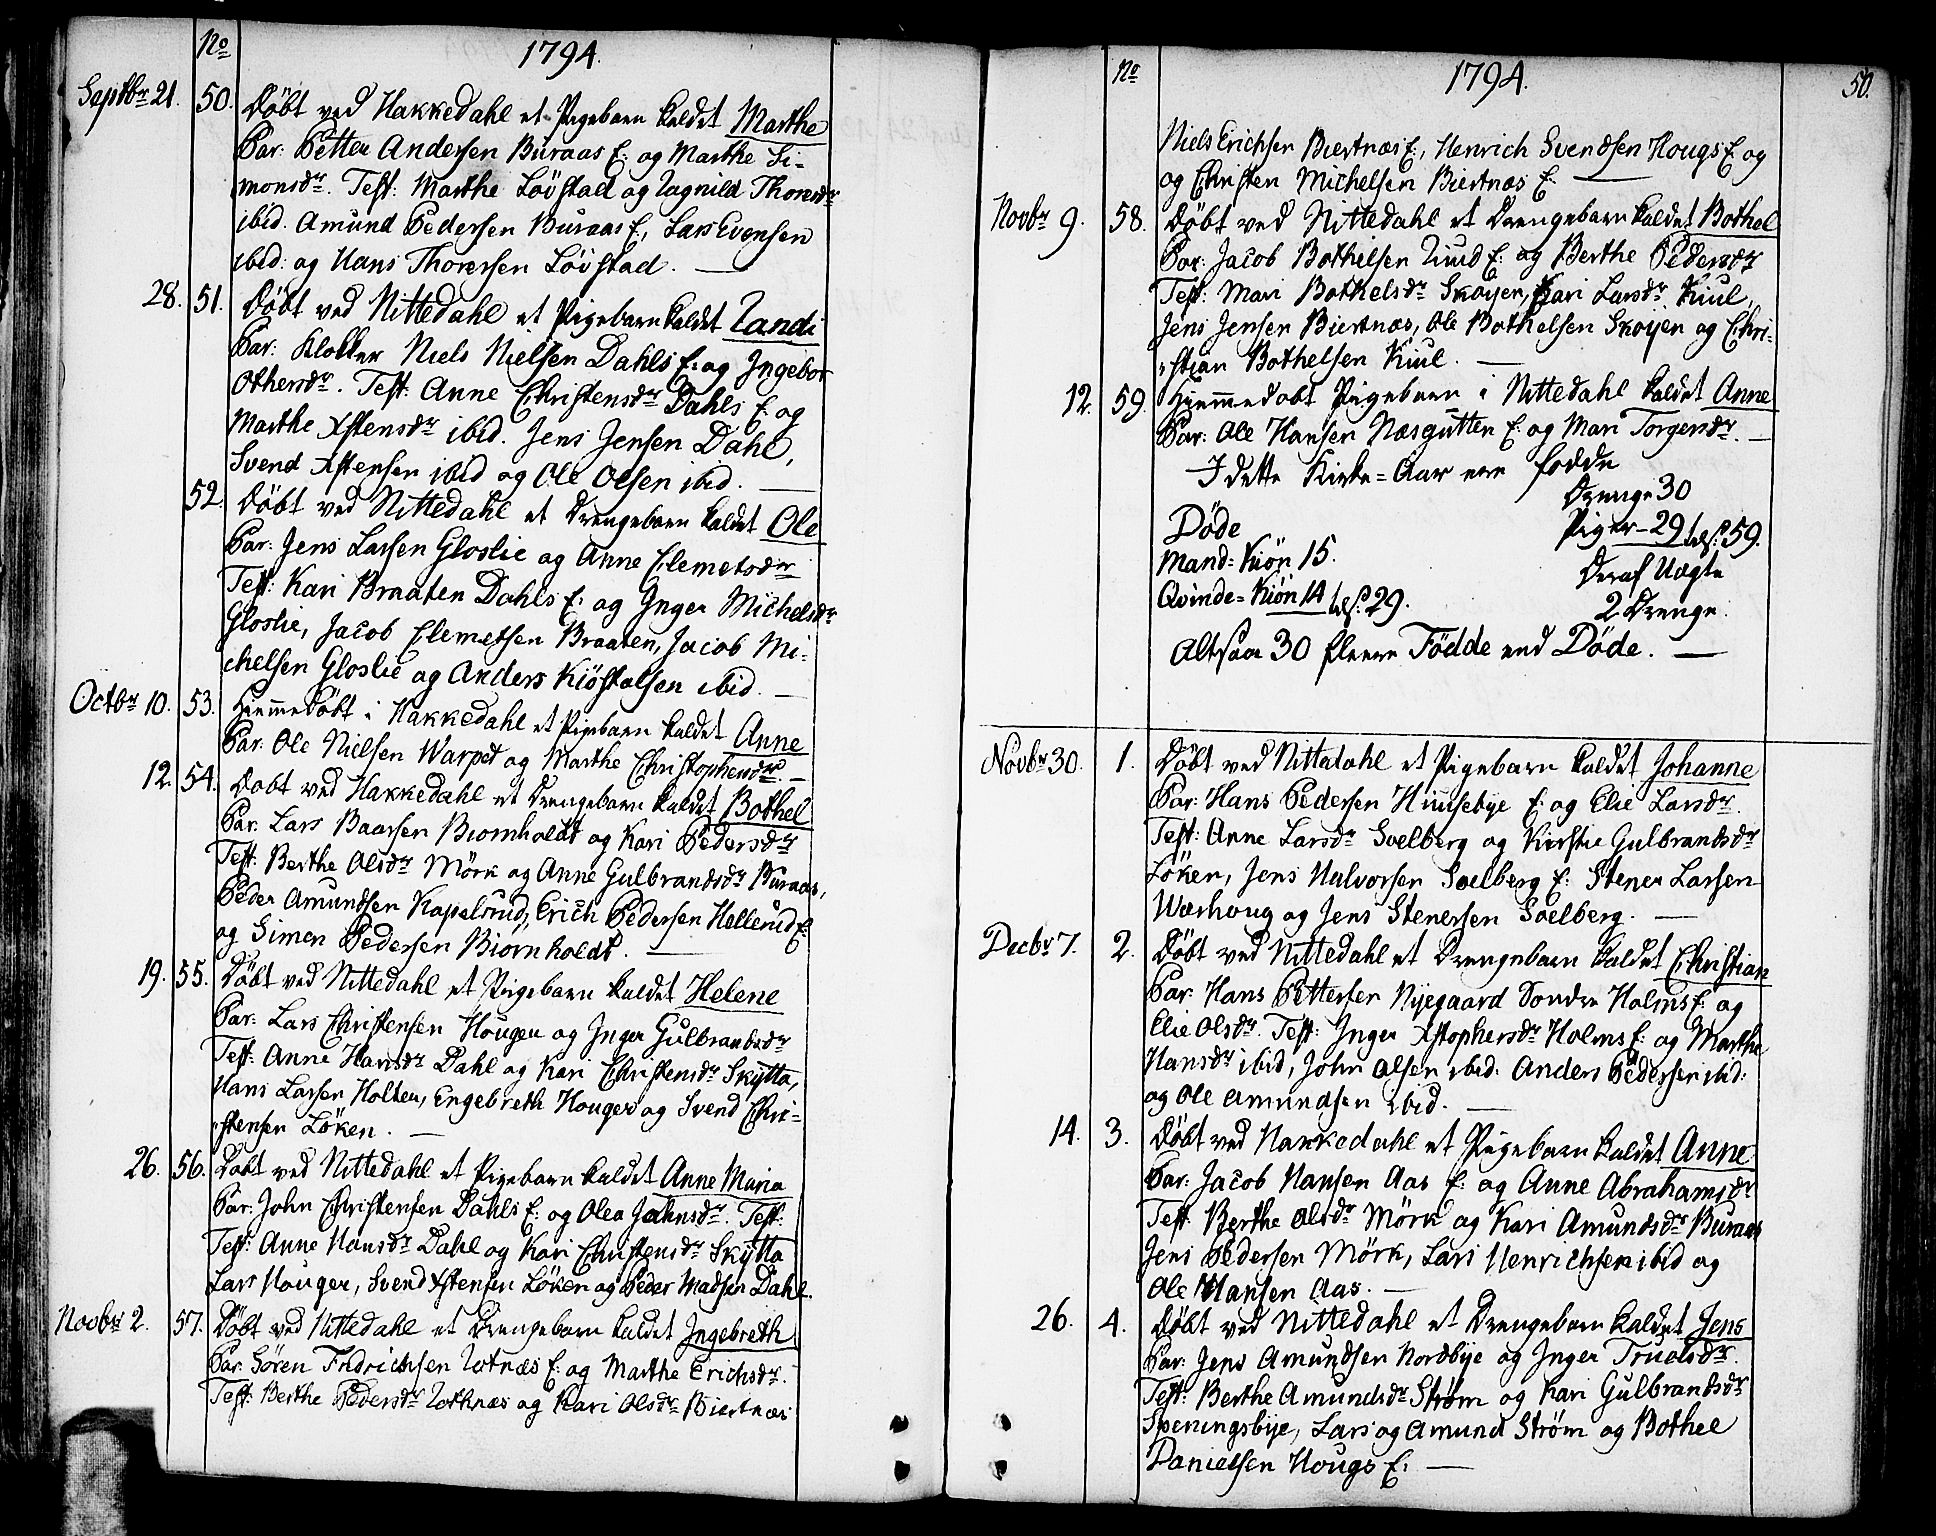 No 1794.
Septbr 21. 50. Döbt ved Hakkedahl et Pigebarn kaldet Marthe
Par: Petter Andersen Buraas E: og Marthe Si-
monsdr. Test: Marthe Lövstad og Ragnild Thoresdr
ibid. Amund Pedersen Buraas E:, Lars Evensen
ibid: og Hans Thoresen Lövstad. —
28. 51. Döbt ved Nittedahl et Pigebarn kaldet Randi
Par: Klokker Niels Nielsen Dahls E: og Ingebor
Othersdr. Test: Anne Christensdr Dahls E: og
Marthe Xstensdr ibid. Jens Jensen Dahl,
Svend Xstensen ibid og Ole Olsen ibid. —
52. Döbt ved Nittedahl et Drengebarn kaldet Ole
Par: Jens Larsen Gloslie og Anne Clemetsdr
Test: Kari Braaten Dahls E: og Inger Michelsdr
Gloslie, Jacob Clemetsen Braaten, Jacob Mi-
chelsen Gloslie og Anders Kiöstolsen ibid. —
Octbr 10. 53. Hiemmedöbt i Hakkedahl et Pigebarn kaldet Anne
Par: Ole Nielsen Warpet og Marthe Christophersdr. —
12. 54. Döbt ved Hakkedahl et Drengebarn kaldet Bothel
Par: Lars Baarsen Biornholdt og Kari Pedersdr
Test: Berthe Olsdr Mörk og Anne Gulbrandsdr Buraas,
Peder Amundsen Kapelsrud, Erich Pedersen Hellerud E:
og Simen Pedersen Biornholdt. —
19. 55. Döbt ved Nittedahl et Pigebarn kaldet Helene
Par: Lars Christensen Hougen og Inger Gulbrandsdr
Test: Anne Hansdr Dahl og Kari Christensdr Skÿtta,
Hans Larsen Holter, Engebreth Houger og Svend Chri-
stensen Löken. —
26. 56. Döbt ved Nittedahl et Pigebarn kaldet Anne Maria
Par: John Christensen Dahls E: og Olea Johnsdr. Test:
Test: Anne Hansdr Dahl og Kari Christensdr Skÿtta
Lars Houger, Svend Xstensen Löken og Peder Madsen Dahl.
Novbr 2. 57. Döbt ved Nittedahl et Drengebarn kaldet Ingebreth
Par: Sören Fridrichsen Rotnæs E: og Marthe Erichsdr.
Test: Berthe Pedersdr Rotknæs og Kari Olsdr Biertnæs
No 1794. 50.
Niels Erichsen Biertnæs E:, Henrich Svendsen Hougs E: og
og Christen Michelsen Biertnæs E: —
Novbr 9. 58. Döbt ved Nittedahl et Drengebarn kaldet Bothel
Par: Jacob Bothelsen Ruud E: og Berthe Pedersdr
Test: Mari Bothelsdr Skøyen, Kari Larsdr Kiul,
Jens Jensen Biertnæs, Ole Bothelsen Skoÿen og Chri-
stian Bothelsen Kiul. —
12. 59. Hiemmedöbt Pigebarn i Nittedahl kaldet Anne
Par: Ole Hansen Næsgutten E: og Mari Torgersdr. —
I dette Kirke-Aar ere fødde
Drenge 30
Döde Piger - 29 tils: 59.
Mand-Kiön 15. Deraf Uægte
Qvinde-Kiön 14 tils: 29. 2 Drenge.
Altsaa 30 fleere Födde end Döde. —
Novbr 30. 1. Döbt ved Nittedahl et Pigebarn kaldet Johanne
Par: Hans Pedersen Huusebye E: og Elie Larsdr.
Test: Anne Larsdr Soelberg og Kirstie Gulbrandsdr
Löken, Jens Halvorsen Soelberg E: Stener Larsen
Wærhoug og Jens Stenersen Soelberg. —
Decbr 7. 2. Döbt ved Nittedahl et Drengebarn kaldet Christian
Par: Hans Pettersen Nyegaard Sondre Holms E: og
Elie Olsdr. Test: Inger Xstophersdr Holms E: og Marthe
Hansdr ibid, John Olsen ibid. Anders Pedersen ibid:
og Ole Amundsen ibid. —
14. 3. Döbt ved Hakkedahl et Pigebarn kaldet Anne
Par: Jacob Hansen Aas E: og Anne Abrahamsdr
Test: Berthe Olsdr Mörk og Kari Amundsdr Buraas
Jens Pedersen Mörk, Lars Henrichsen ibid og
Ole Hansen Aas. —
26. 4. Döbt ved Nittedahl et Drengebarn kaldet Jens
Par: Jens Amundsen Nordbye og Inger Truelsdr.
Test: Berthe Amundsdr Strøm og Kari Gulbrandsdr
Speningsbye, Lars og Amund Strøm og Bothel
Danielsen Hougs E: —